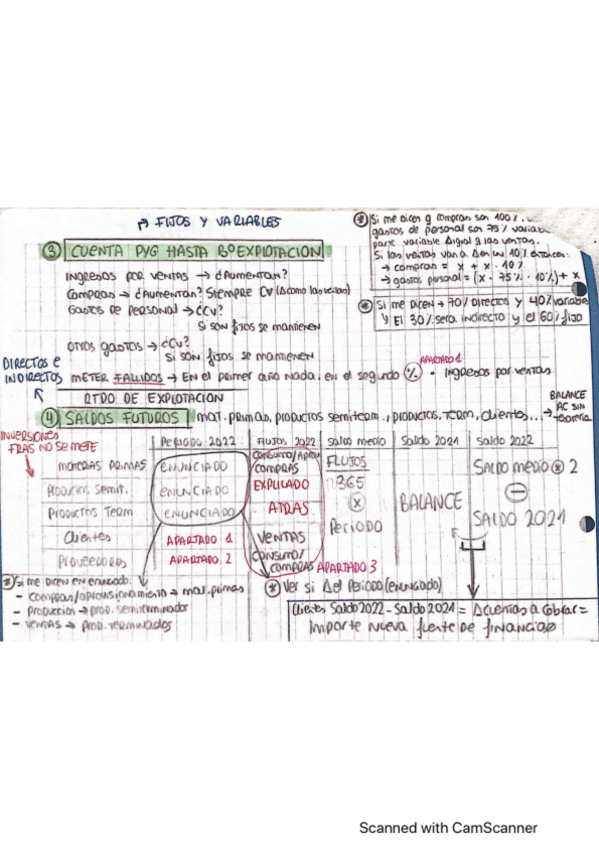 → FIJOS Y VARIABLES
③ CUENTA PYG HASTA Bº EXPLOTACION
INGRESOS POR VENTAS → ¿AUMENTAN?
COMPRAS → ¿AUMENTAN? SIEMPRE CV (Δ como las ventas)
GASTOS DE PERSONAL → ¿CV?
SI SON FIJOS SE MANTIENEN
OTROS GASTOS → ¿CV?
SI SON FIJOS SE MANTIENEN
DIRECTOS E
INDIRECTOS
METER FALLIDOS → EN el primer año Nada. en el segundo % • Ingresos por ventas
APARTADO 1
RTDO DE EXPLOTACION
* Si me Dicen q compras son 100%.
gastos de personal son 75% variab
parte variable Δ igual q las ventas.
Si las ventas van a Δ en un 10% entonces:
→ compras = x + x · 10%
→ gastos personal = (x · 75% · 10%) + x
* Si me DICEN → 70% DIRECTOS y 40% variable
El 30% sera indirecto y el 60% fijo
④ SALDOS FUTUROS mat. primas, productos semiterm., productos, term, clientes... →
BALANCE
AC SIN
INVERSIONES
FRAS NO SE METE
PERIODO 2022 FLUJOS 2022 Saldo medio Saldo 2021 Saldo 2022
MATERIAS PRIMAS ENUNCIADO COMPRAS
Productos Semit. ENUNCIADO EXPLICADO
PRODUCTOS TERM ENUNCIADO ATRAS
Clientes APARTADO 1 VENTAS
Proveedores APARTADO 2 CONSUMO/
COMPRAS APARTADO 3
FLUJOS
365
ⓧ
PERIODO
BALANCE
SALDO MEDIO ⓧ 2
⊖
SALDO 2021
* Si me DICEN EN enunciado:
- compras/aprovisionamiento → mat. primas
- produccion → prod. semiterminador
- ventas → prod. terminados
* Ver si Δ el Periodo (enunciado)
Clientes Saldo 2022 - Saldo 2021 = Δ cuentas a cobrar =
Importe nueva fuente de financiaº
Scanned with CamScanner